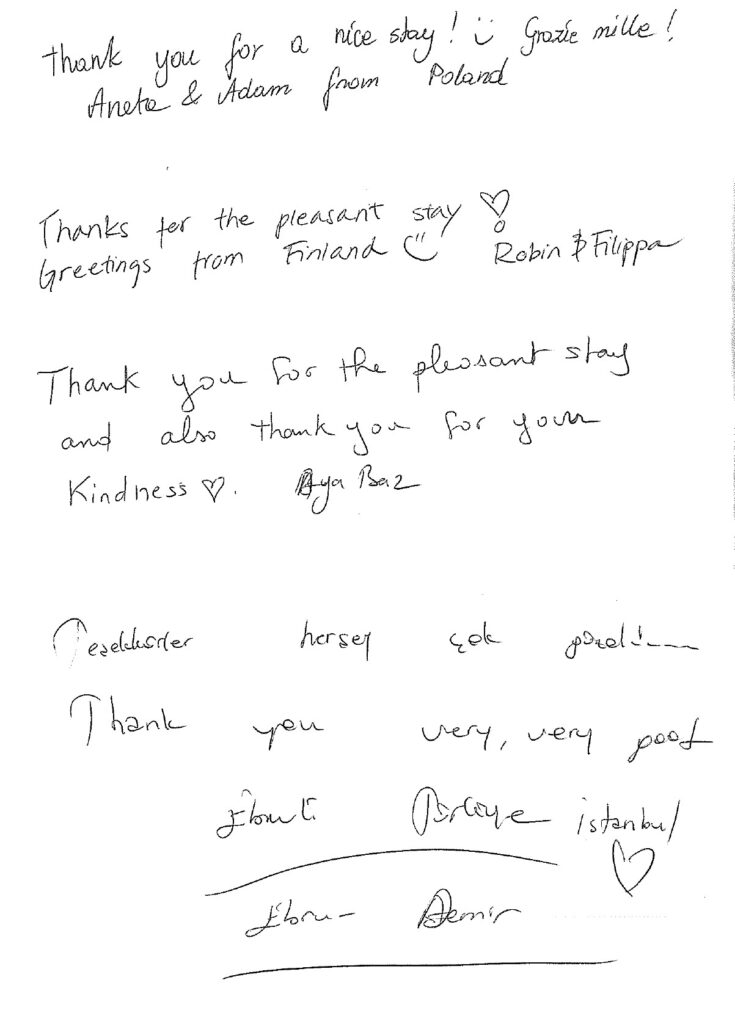 thank you for a nice stay! Grazie mille!
Aneta & Adam from Poland
Thanks for the pleasant stay
Greetings from Finland Robin & Filippa
Thank you for the pleasant stay
and also thank you for your
Kindness ♡. Aya Baz
Teşekkürler herşey çok güzel!....
Thank you very, very good
Ebru istanbul
Ebru - Demir